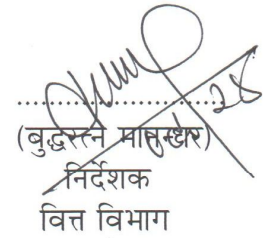 (बुद्धरत्न मानन्धर)
निर्देशक
वित्त विभाग